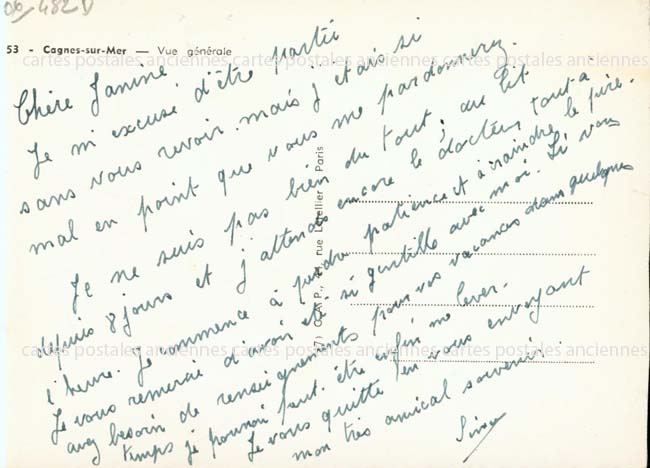 06/482D
53 - Cagnes-sur-Mer — Vue générale
cartes postales anciennes cartes postales anciennes cartes postales anciennes
Chère Janine,
Je m'excuse d'être partie
sans vous revoir mais j'étais si
mal en point que vous me pardonnerez.
Je ne suis pas bien du tout ; au lit
depuis 8 jours et j'attends encore le docteur tout à
l'heure. Je commence à perdre patience et à craindre le pire.
Je vous remercie d'avoir été si gentille avec moi. Si vous
avez besoin de renseignements pour vos vacances dans quelques
temps je pourrai peut être enfin me lever.
Je vous quitte en vous envoyant
mon très amical souvenir.
rue Letellier Paris
cartes postales anciennes cartes postales anciennes cartes postales anciennes